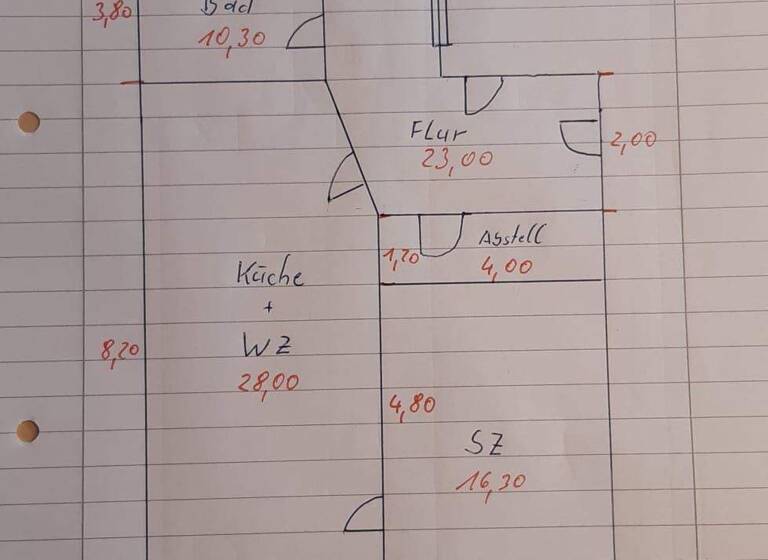 3,80
Bad
10,30
Flur
23,00
2,00
Abstell
4,00
1,20
Küche
+
WZ
28,00
8,20
4,80
SZ
16,30